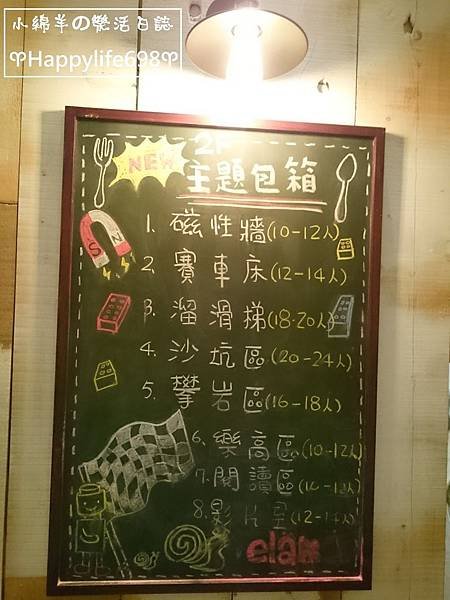 小綿羊の樂活日誌
♡Happylife698♡
NEW
2F
主題包箱
1. 磁性牆(10-12人)
2. 賽車床(12-14人)
3. 溜滑梯(18-20人)
4. 沙坑區(20-24人)
5. 攀岩區(16-18人)
6. 樂高區(10-12人)
7. 閱讀區(10-12人)
8. 影片室(12-14人)
S N